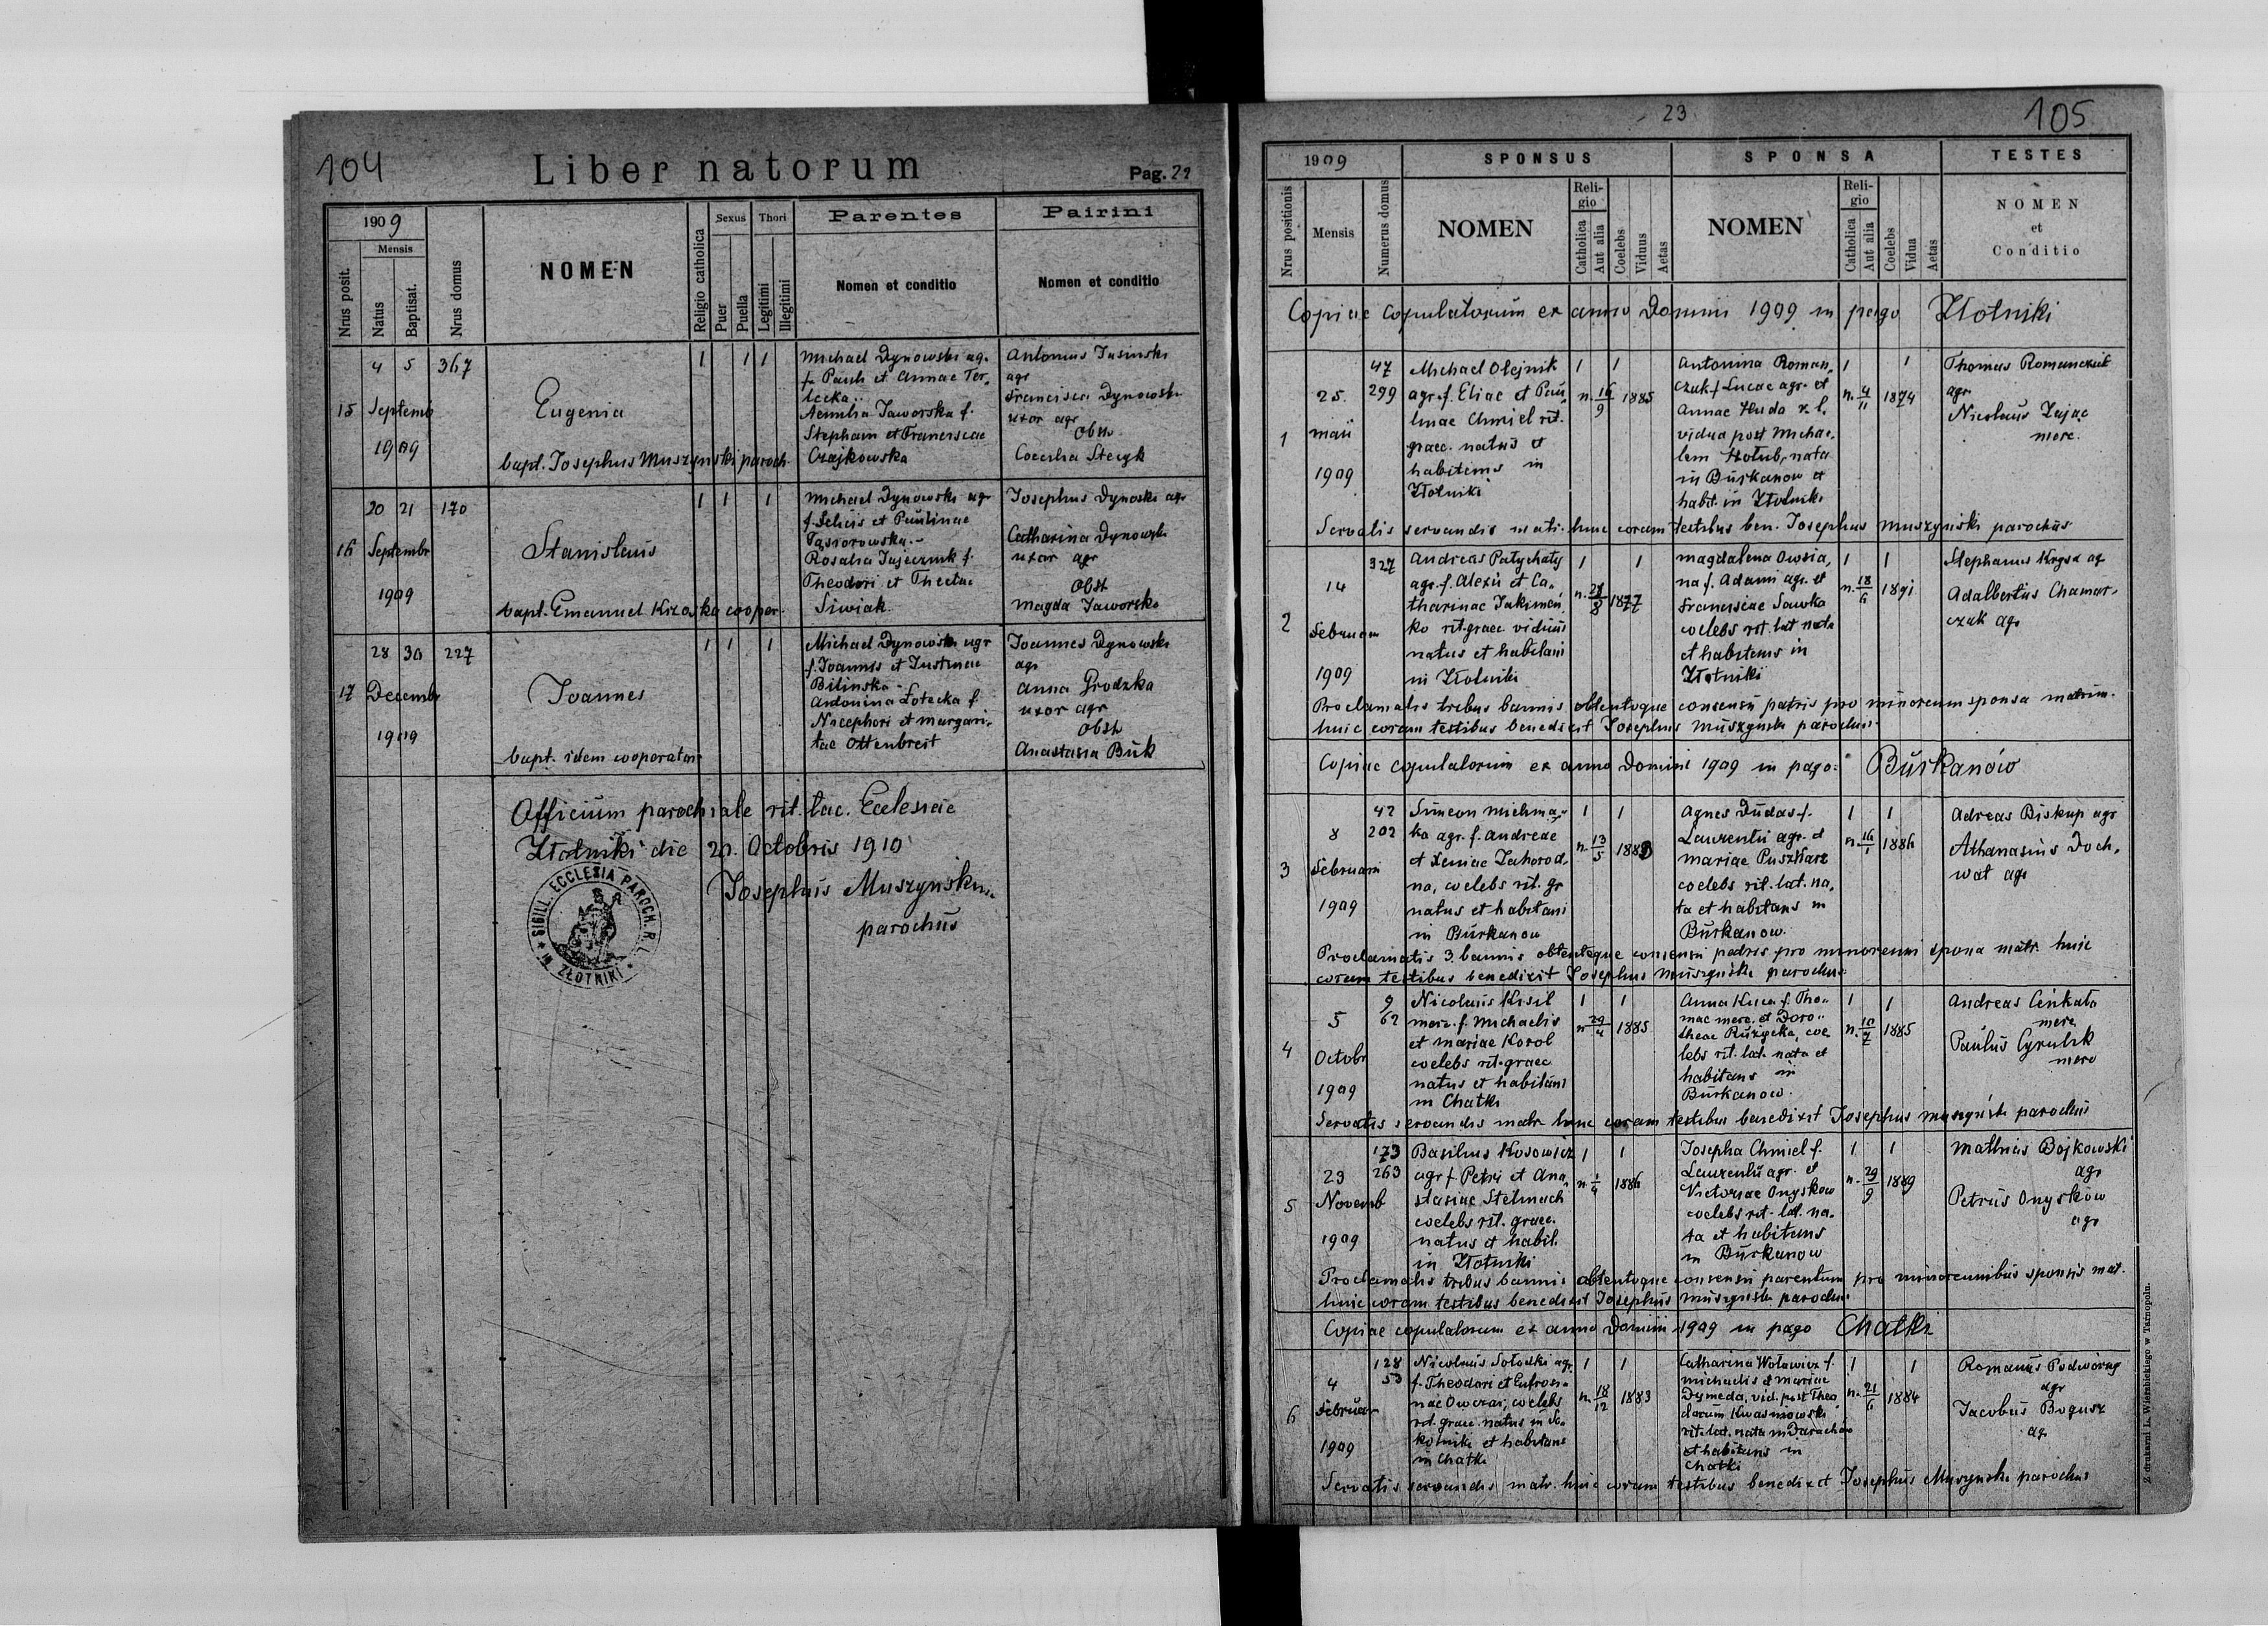 104
Liber natorum
Pag. 22
1909
Mensis
Nrus posit.
Natus
Baptisat.
Nrus domus
NOMEN
Religio catholica
Sexus
Puer
Puella
Thori
Legitimi
Illegitimi
Parentes
Nomen et conditio
Pairini
Nomen et conditio
15
4 5 367
Septemb
1909
Eugenia
bapt. Josephus Muszynski paroch
1 1 1
Michael Dynowski agr.
f. Pauli et Annae Ter„
lecka..
Aemilia Jaworska f.
Stephani et Franciscae
Czajkowska
Antonius Jasinski
agr
Francisca Dynowski
uxor agr
Obst.
Coecilia Stecyk
16
20 21 170
Septembr
1909
Stanislaus
bapt. Emanuel Krzoska cooper.
1 1 1
Michael Dynowski agr
f. Felicis et Paulinae
Tąsiorowska.-
Rosalia Jajecznik f.
Theodori et Theclae
Siwiak
Josephus Dynoski agr
Catharina Dynowski
uxor agr
Obst
Magda Jaworska
17
28 30 227
Decembr
1909
Joannes
bapt. idem cooperator
1 1 1
Michael Dynowski agr
f. Joannis et Justinae
Bilinska -
Antonina Łotecka f.
Nicephori et Margari„
tae Ottenbreit
Joannes Dynowski
agr
Anna Grodzka
uxor agr
Obst
Anastasia Buk
Officium parochiale rit. lac. Ecclesiae
Złotniki die 20. Octobris 1910
Josephus Muszynski
parochus
SIGILL. ECCLESIA PAROCH. R. L. IN ZŁOTNIKI
23
105
1909
SPONSUS
SPONSA
TESTES
Nrus positionis
Mensis
Numerus domus
NOMEN
Religio
Catholica
Aut alia
Coelebs
Viduus
Aetas
NOMEN
Religio
Catholica
Aut alia
Coelebs
Vidua
Aetas
NOMEN
et
Conditio
Copiae copulatorum ex anno Domini 1909 in pago Złotniki
1
25.
maii
1909
47
299
Michael Olejnik
agr. f. Eliae et Pau„
linae Chmiel rit.
graec. natus et
habitans in
Złotniki
1 1
n. 16/9 1885
Antonina Roman„
czuk f. Lucae agr. et
Annae Huda r. l.
vidua post Micha„
lem Hołub, nata
in Burkanow et
habit. in Złotniki
1 1
n. 4/11 1874
Thomas Romanczuk
agr
Nicolaus Zając
merc.
Servatis servandis matr. huic coram testibus ben. Josephus Muszynski parochus
2
14
Februarii
1909
327
Andreas Patychaty
agr. f. Alexii et Ca„
tharinae Jakimen„
ko rit. graec viduus
natus et habitans
in Złotniki
1 1
1877
Magdalena Owsia„
na f. Adami agr. et
Franciscae Sawka
coelebs rit. lat nata
et habitans in
Złotniki
1 1
n. 18/6 1891
Stephanus Krysa ag
Adalbertus Chamar„
czuk agr
Proclamatis tribus bannis obtentoque consensu patris pro minorenni sponsa matrim.
huic coram testibus benedixit Josephus Muszynski parochus.
Copiae copulatorum ex anno Domini 1909 in pago: Burkanów
3
8
Februarii
1909
42
202
Simeon Michma„
ka agr. f. Andreae
et Xeniae Zahorod„
na, coelebs rit. gr
natus et habitans
in Burkanow
1 1
n. 13/5
Agnes Dudas f.
Laurentii agr. et
Mariae Puszkarz
coelebs rit. lat. na„
ta et habitans in
Burkanow.
1 1
n. 16/1 1886
Adreas Biskup agr
Athanasius Doch„
wat agr
Proclamatis 3. bannis obtentoque consensu patris pro minorenni spona matr. huic
coram testibus benedixit Josephus Muszynski parochus.
4
5
Octobr
1909
9
62
Nicolaus Kisil
merc. f. Michaelis
et Mariae Korol
coelebs rit. graec
natus et habitans
in Chatki
1 1
n 29/4 1885
Anna Kuca f. Tho„
mae merc. et Doro„
theae Rużycka, coe
lebs rit. lat. nata et
habitans in
Burkanow.
1 1
n. 10/7 1885
Andreas Cinkała
merc
Paulus Cyrulik
merc
Servatis servandis matr huic coram testibus benedixit Josephus Muszynski parochus
5
23
Novemb
1909
173
263
Basilius Kosowicz
agr f. Petri et Ana„
stasiae Stelmach
coelebs rit. graec.
natus et habit.
in Złotniki
1 1
n. 1/4 1886
Josepha Chmiel f.
Laurentii agr. et
Victoriae Onyskow
coelebs rit. lat. na„
ta et habitans
in Burkanow
1 1
n. 29/9 1889
Mathias Bojkowski
agr
Petrus Onyskow
agr
Proclamatis tribus bannis obtentoque consensu parentum pro minorennibus sponsis mat.
huic coram testibus benedixit Josephus Muszynski parochus
Copiae copulatorum ex anno Domini 1909 in pago Chatki
6
4
Februar
1909
128
53
Nicolaus Sołoski agr.
f. Theodori et Eufrosi„
nae Owczar, coelebs
rit. graec. natus in So„
kolniki et habitans
in Chatki
1 1
n. 18/12 1883
Catharina Wołowicz f.
Michaelis et Mariae
Dymeda, vid. post Theo
dorum Kwasniowski
rit. lat. nata in Darachów
et habitans in
Chatki
1 1
n. 21/6 1884
Romanus Podworny
agr
Jacobus Bogusz
ag.
Servatis servandis matr. huic coram testibus benedixit Josephus Muszynski parochus
Z drukarni L. Wierzbickiego w Tarnopolu.